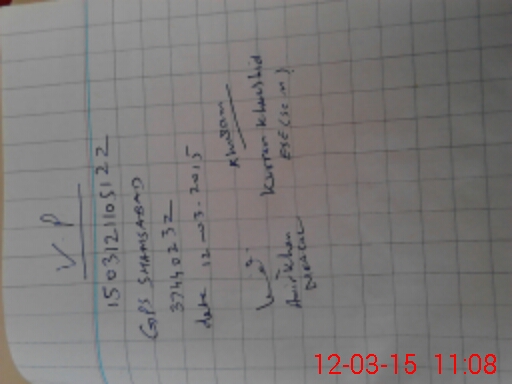 V.P
15031211105122
GPS SHAMSABAD
37440232
date 12-03-2015
Khurram
Khurram Khurshid
Amir Khan
12-03-15 11:08